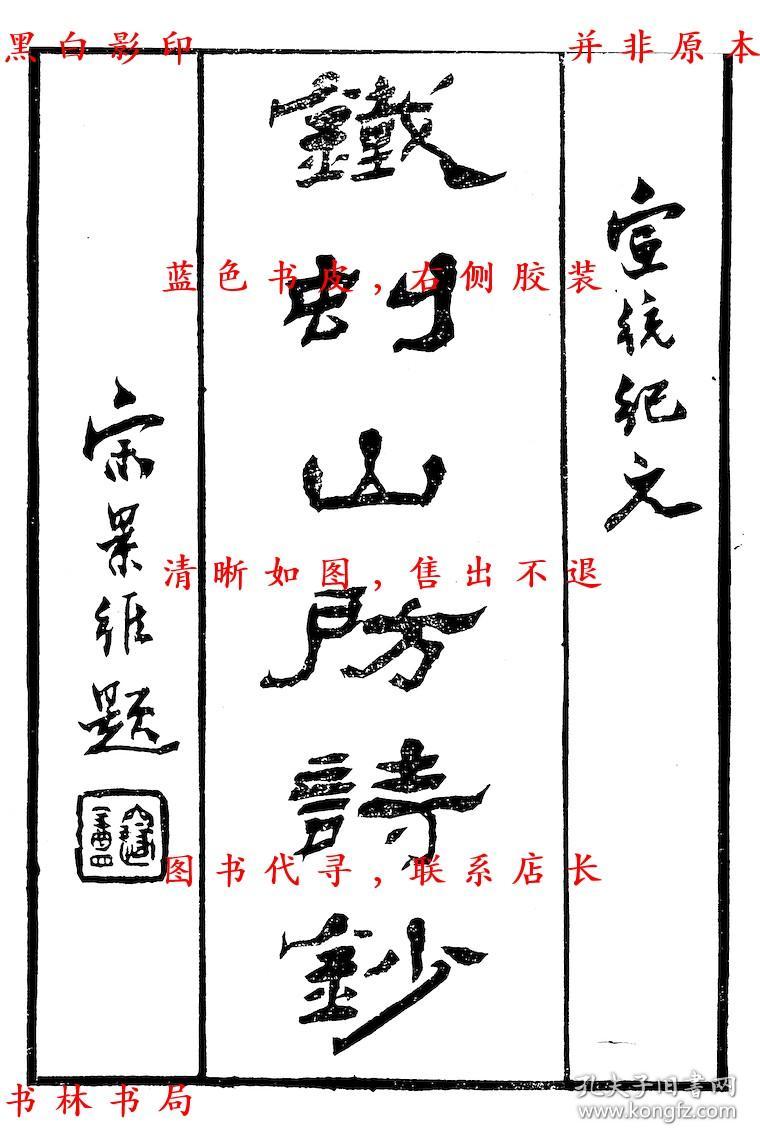 黑白影印
并非原本
宣統紀元
鐵虯山房詩鈔
景維題
蓝色书皮，右侧胶装
清晰如图，售出不退
图书代寻，联系店长
书林书局
孔夫子旧书网
www.kongfz.com